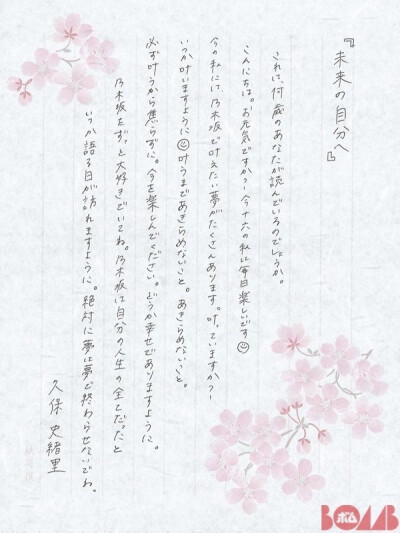 『未来の自分へ』
これは、何歳のあなたが読んでいるのでしょうか。
こんにちは。お元気ですか？今十六の私は毎日楽しいです☺
今の私には、乃木坂で叶えたい夢がたくさんあります。叶っていますか？
いつか叶いますように☺叶うまであきらめないこと。あきらめないこと。
必ず叶うから焦らずに。今を楽しんでください。どうか幸せでありますように。
乃木坂をずっと大好きでいてね。乃木坂は自分の人生の全てだったと
いつか語る日が訪れますように。絶対に夢は夢で終わらせないでね。
久保 史緒里
BOMB
ボム